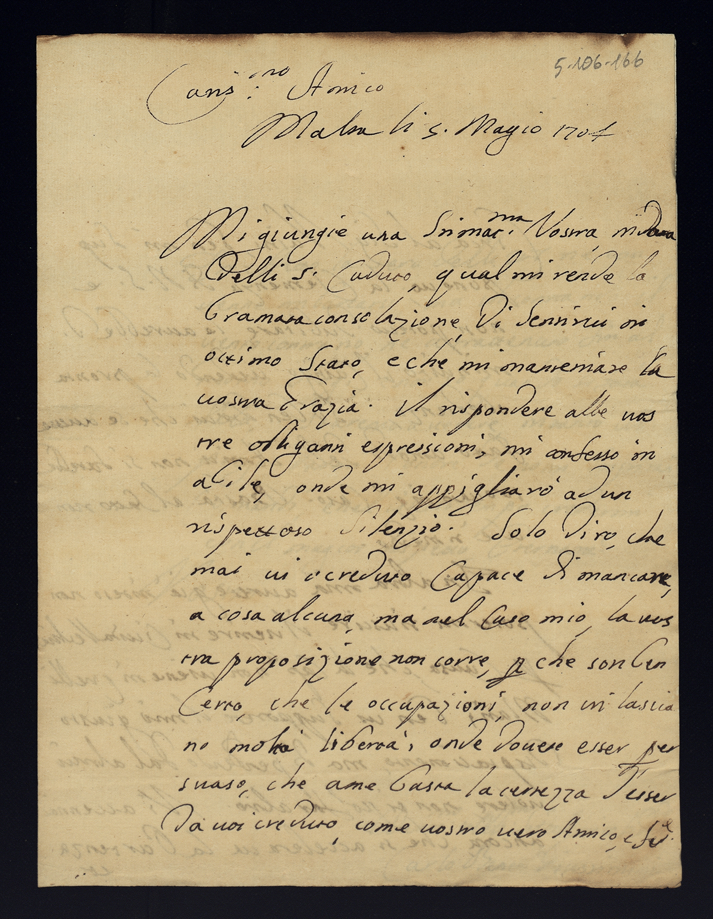 5·106·166
Caris:mo Amico
Malta li 5. Magio 1704
Mi giungie una Stimat:ma Vostra
delli 5. Caduto qual mi rende la
bramata consolazione di sentirvi in
ottimo stato, e che mi manteniate la
vostra Grazia. il rispondere alle vos
tre obliganti espressioni, mi confesso in
abile, onde mi appigliarò ad un
rispettoso silenzio. Solo dirò, che
mai vi ò creduto Capace di mancare,
a cosa alcuna, ma nel Caso mio, la vos
tra proposizione non corre, p che son ben
Certo che le occupazioni non vi lascia
no molta libertà, onde dovete esser per
suaso, che a me basta la certezza d'esser
da voi creduto, come vostro vero Amico, e